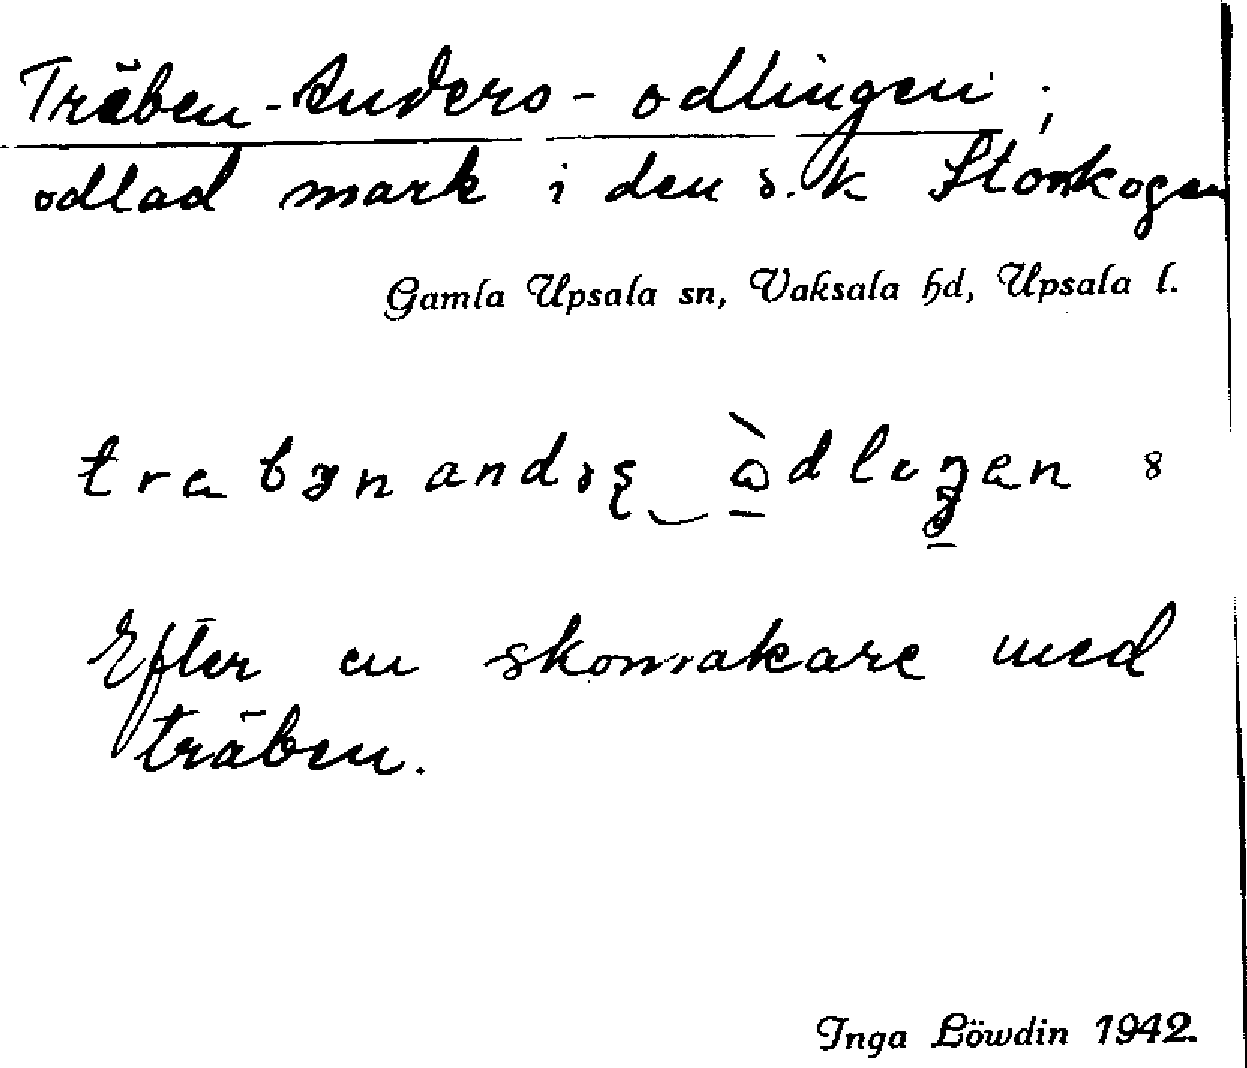 Träben-Anders-odlingen;
odlad mark i den s.k Storskogen
Gamla Upsala sn, Vaksala hd, Upsala l.
8
Efter en skomakare med
träben.
Inga Löwdin 1942.